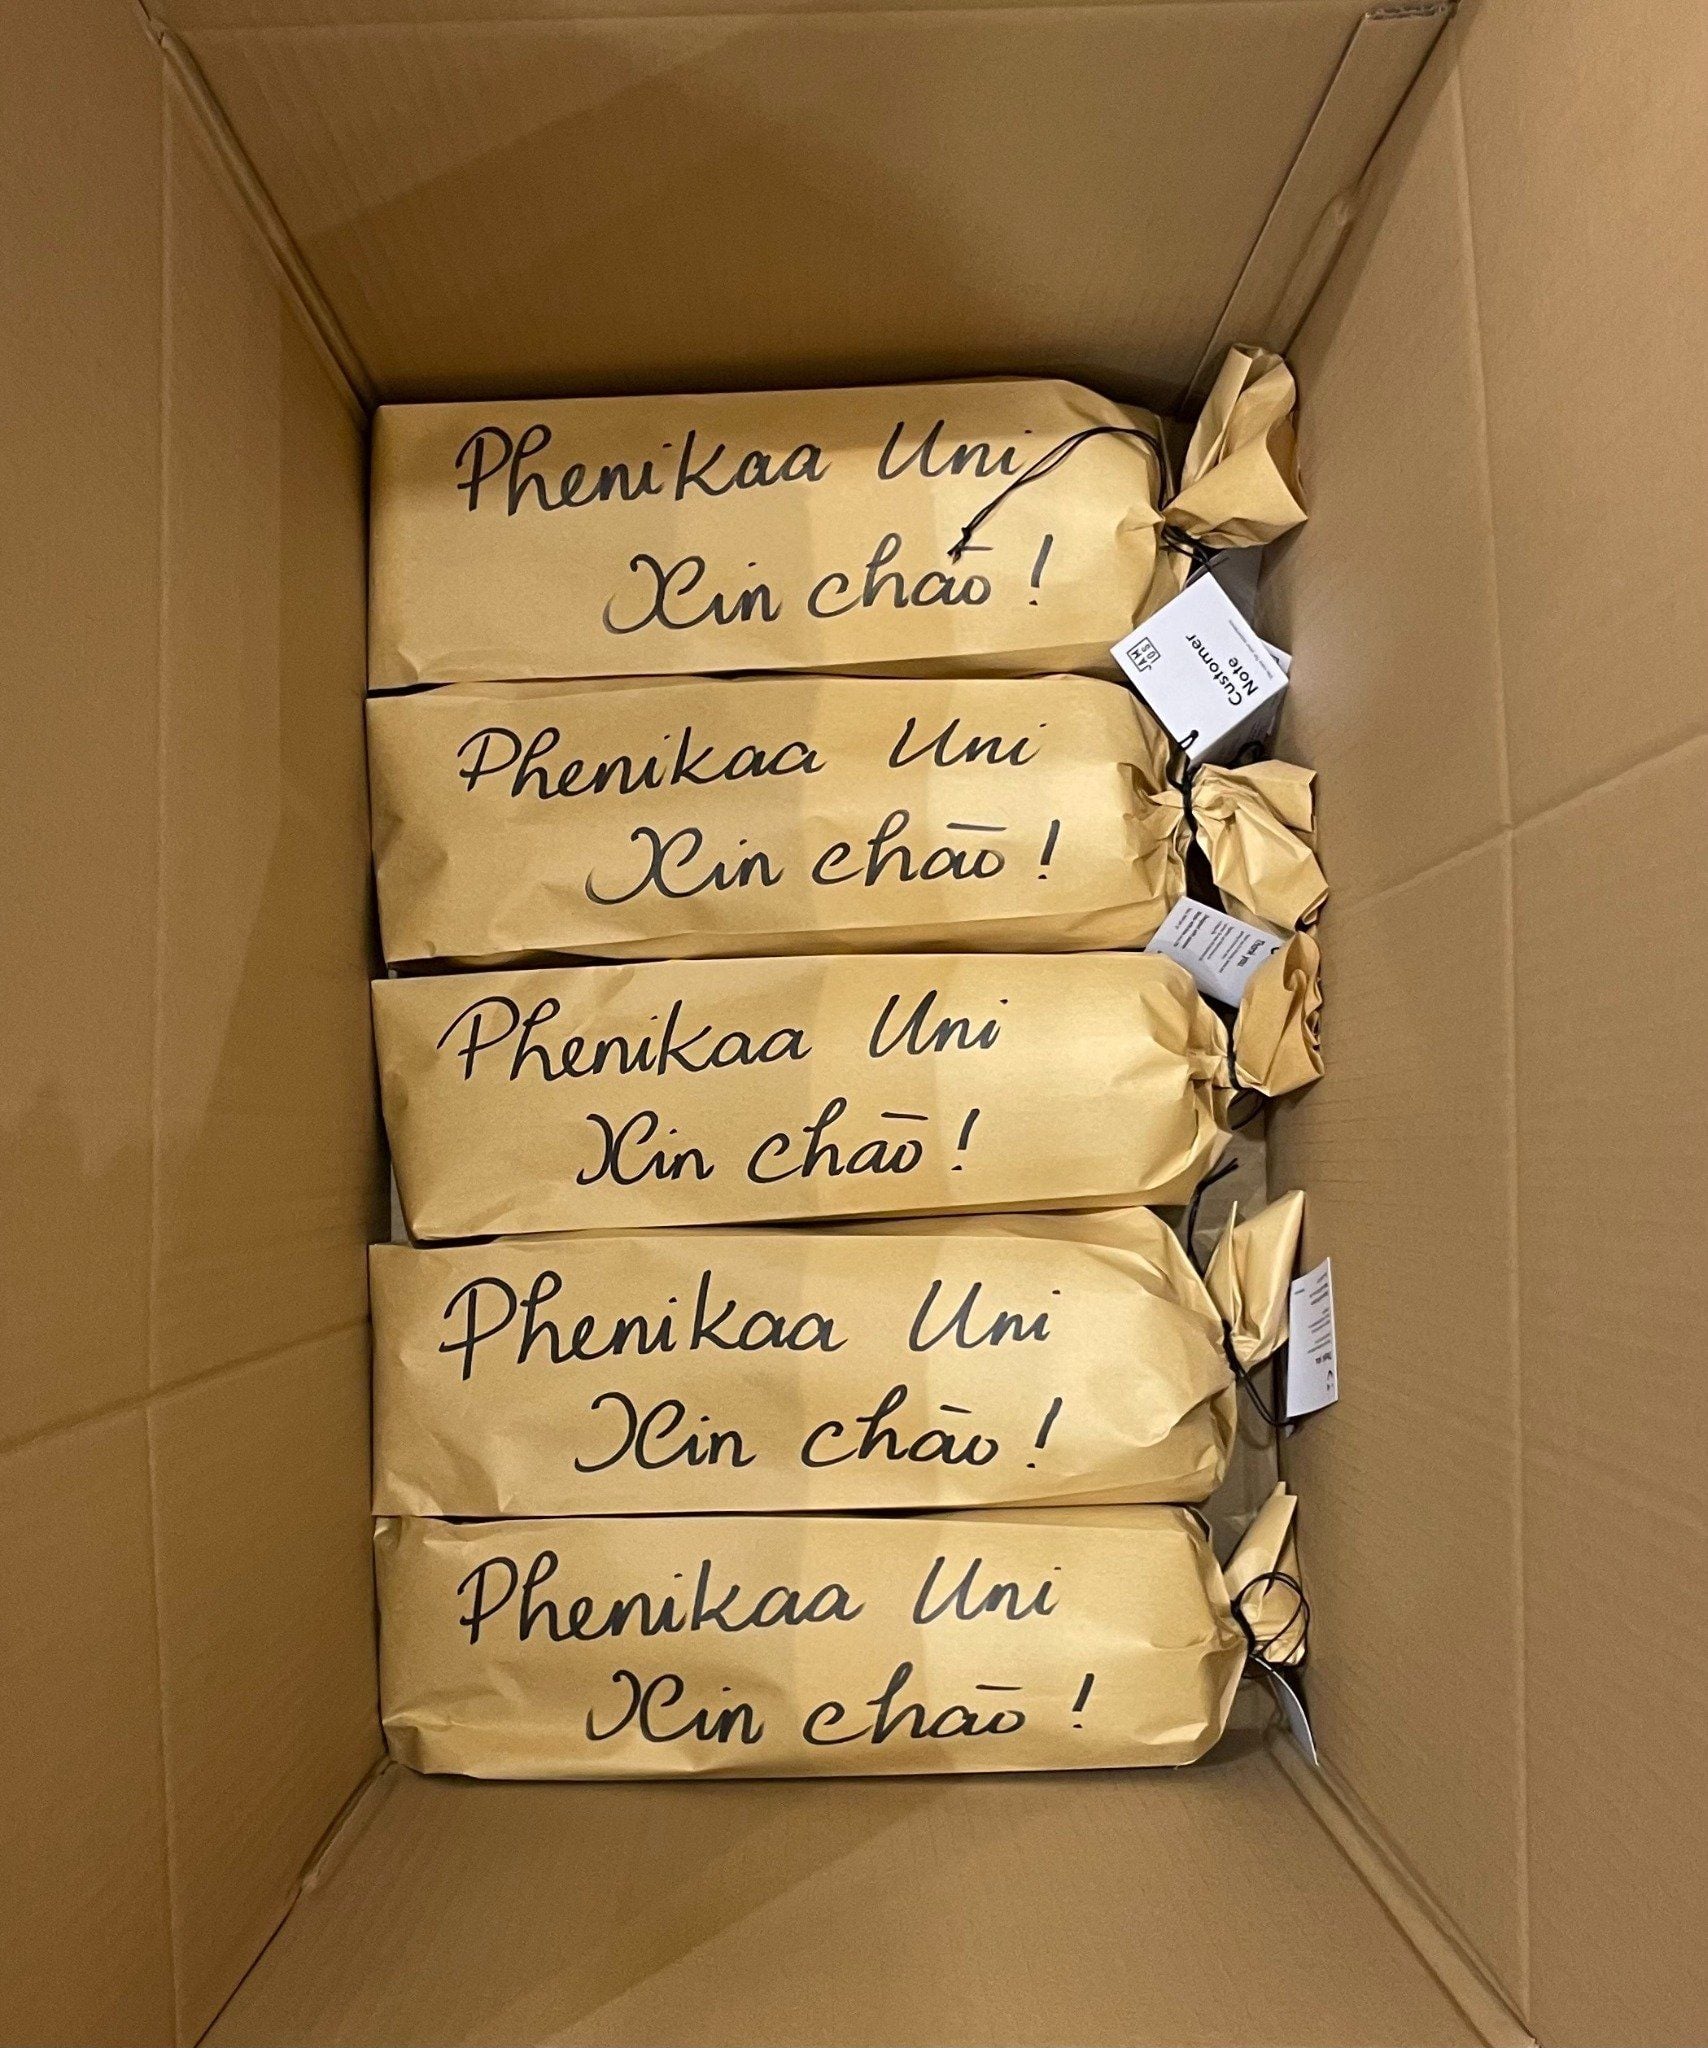 Phenikaa Uni
Xin chào!
JAM
LOS
Customer
Note
Phenikaa Uni
Xin chào!
Thank you,
Phenikaa Uni
Xin chào!
Phenikaa Uni
Xin chào!
Phenikaa Uni
Xin chào!